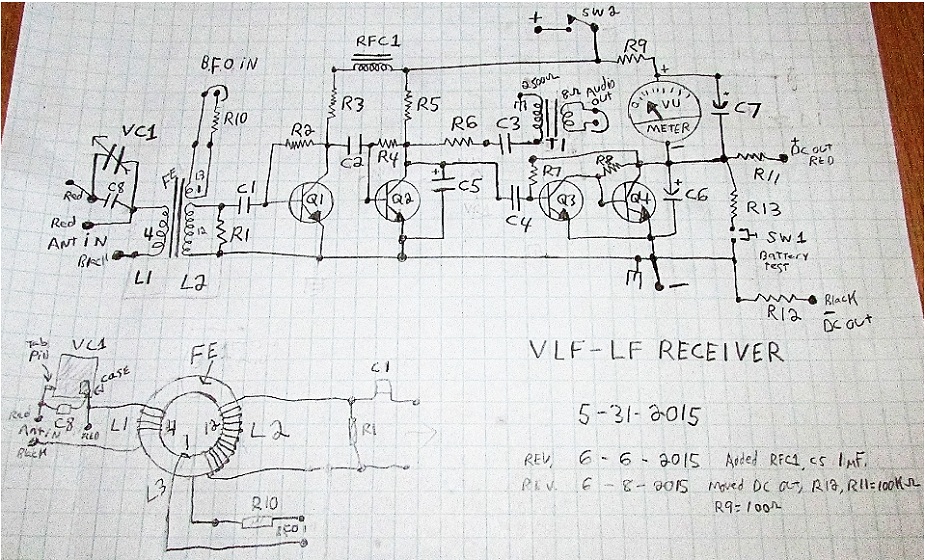 SW2
+
RFC1
B.F.O IN
R9
+
VC1
R10
R2
R3
R5
2500Ω
8Ω
Audio out
VU
METER
C7
C8
FE
13
C1
C2
R4
R6
C3
T1
+
DC OUT
RED
R11
Red
Red
ANT IN
Black
4
12
R1
Q1
Q2
+
C5
C4
R7
R8
Q3
Q4
+
C6
-
R13
SW1
Battery
test
L1
L2
-
R12
Black
-
DC out
VLF-LF RECEIVER
5-31-2015
REV, 6-6-2015 Added RFC1, C5 1MF.
REV. 6-8-2015 moved DC out, R12, R11=100KΩ
R9=100Ω
Tab
Pin
VC1
case
FE
C1
Red
C8
Ant in
Red
Black
L1
4
12
1
L2
R1
L3
R10